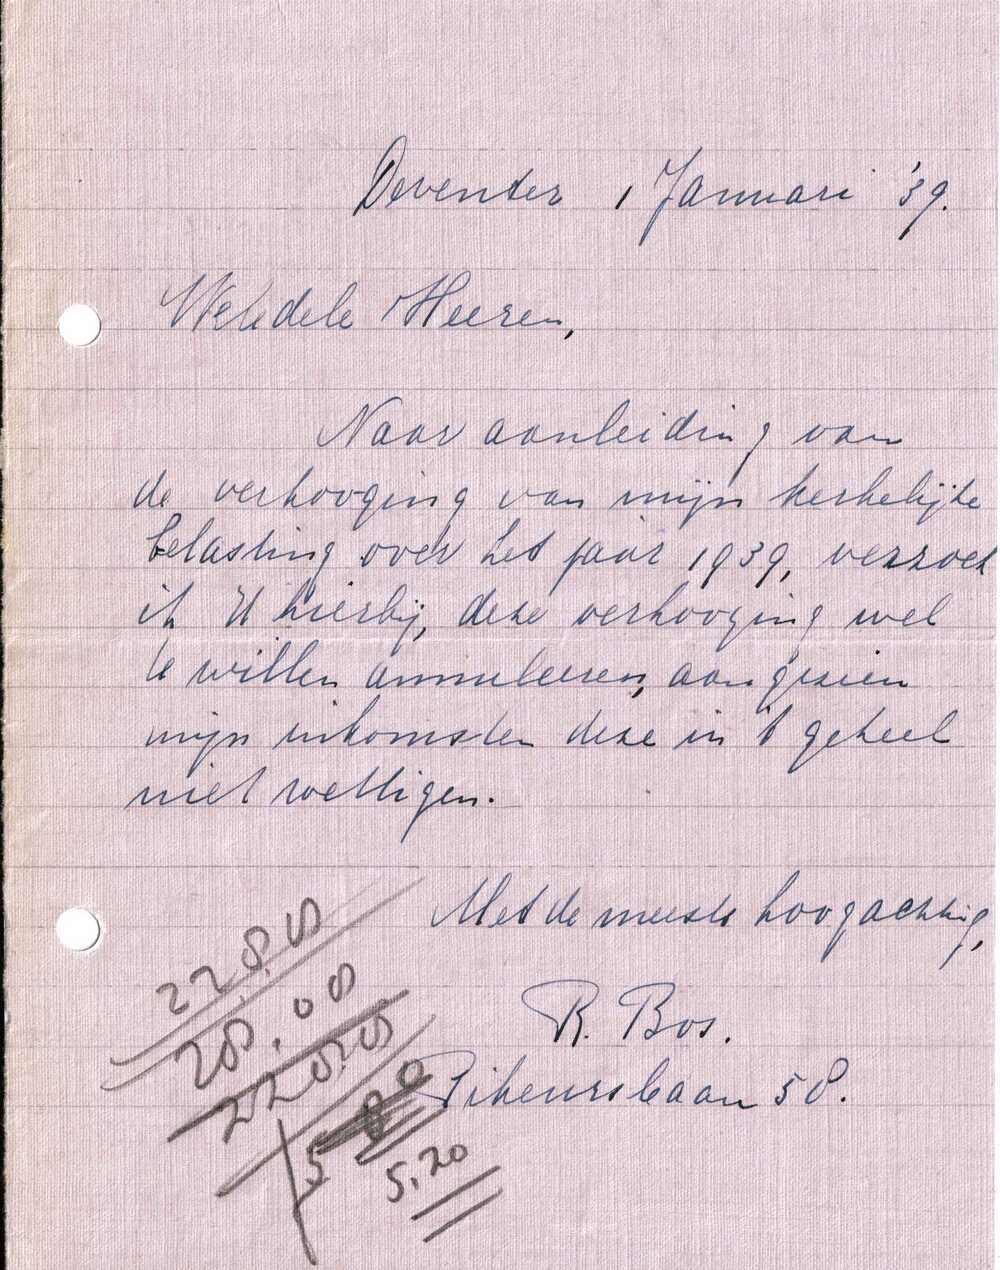 Deventer 1 Januari '39.
WelEdele Heeren,
Naar aanleiding van
de verhooging van mijn kerkelijke
belasting over het jaar 1939, verzoek
ik U hierbij, deze verhooging wel
te willen annuleeren, aangezien
mijn inkomsten deze in 't geheel
niet wettigen.
Met de meeste hoogachting,
R. Bos.
58.
5.20